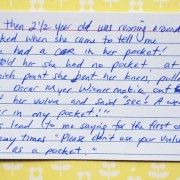 then 2½ yr old was running around
ked when she came to tell me
e had a car in her pocket!
told her she had no pocket at
which point she bent her knees, pulled
Oscar Mayer Wiener mobile out
her vulva and said "see? A
er in my pocket!"
is lead to me saying for the first of
many times "Please don't use your vulva
as a pocket."